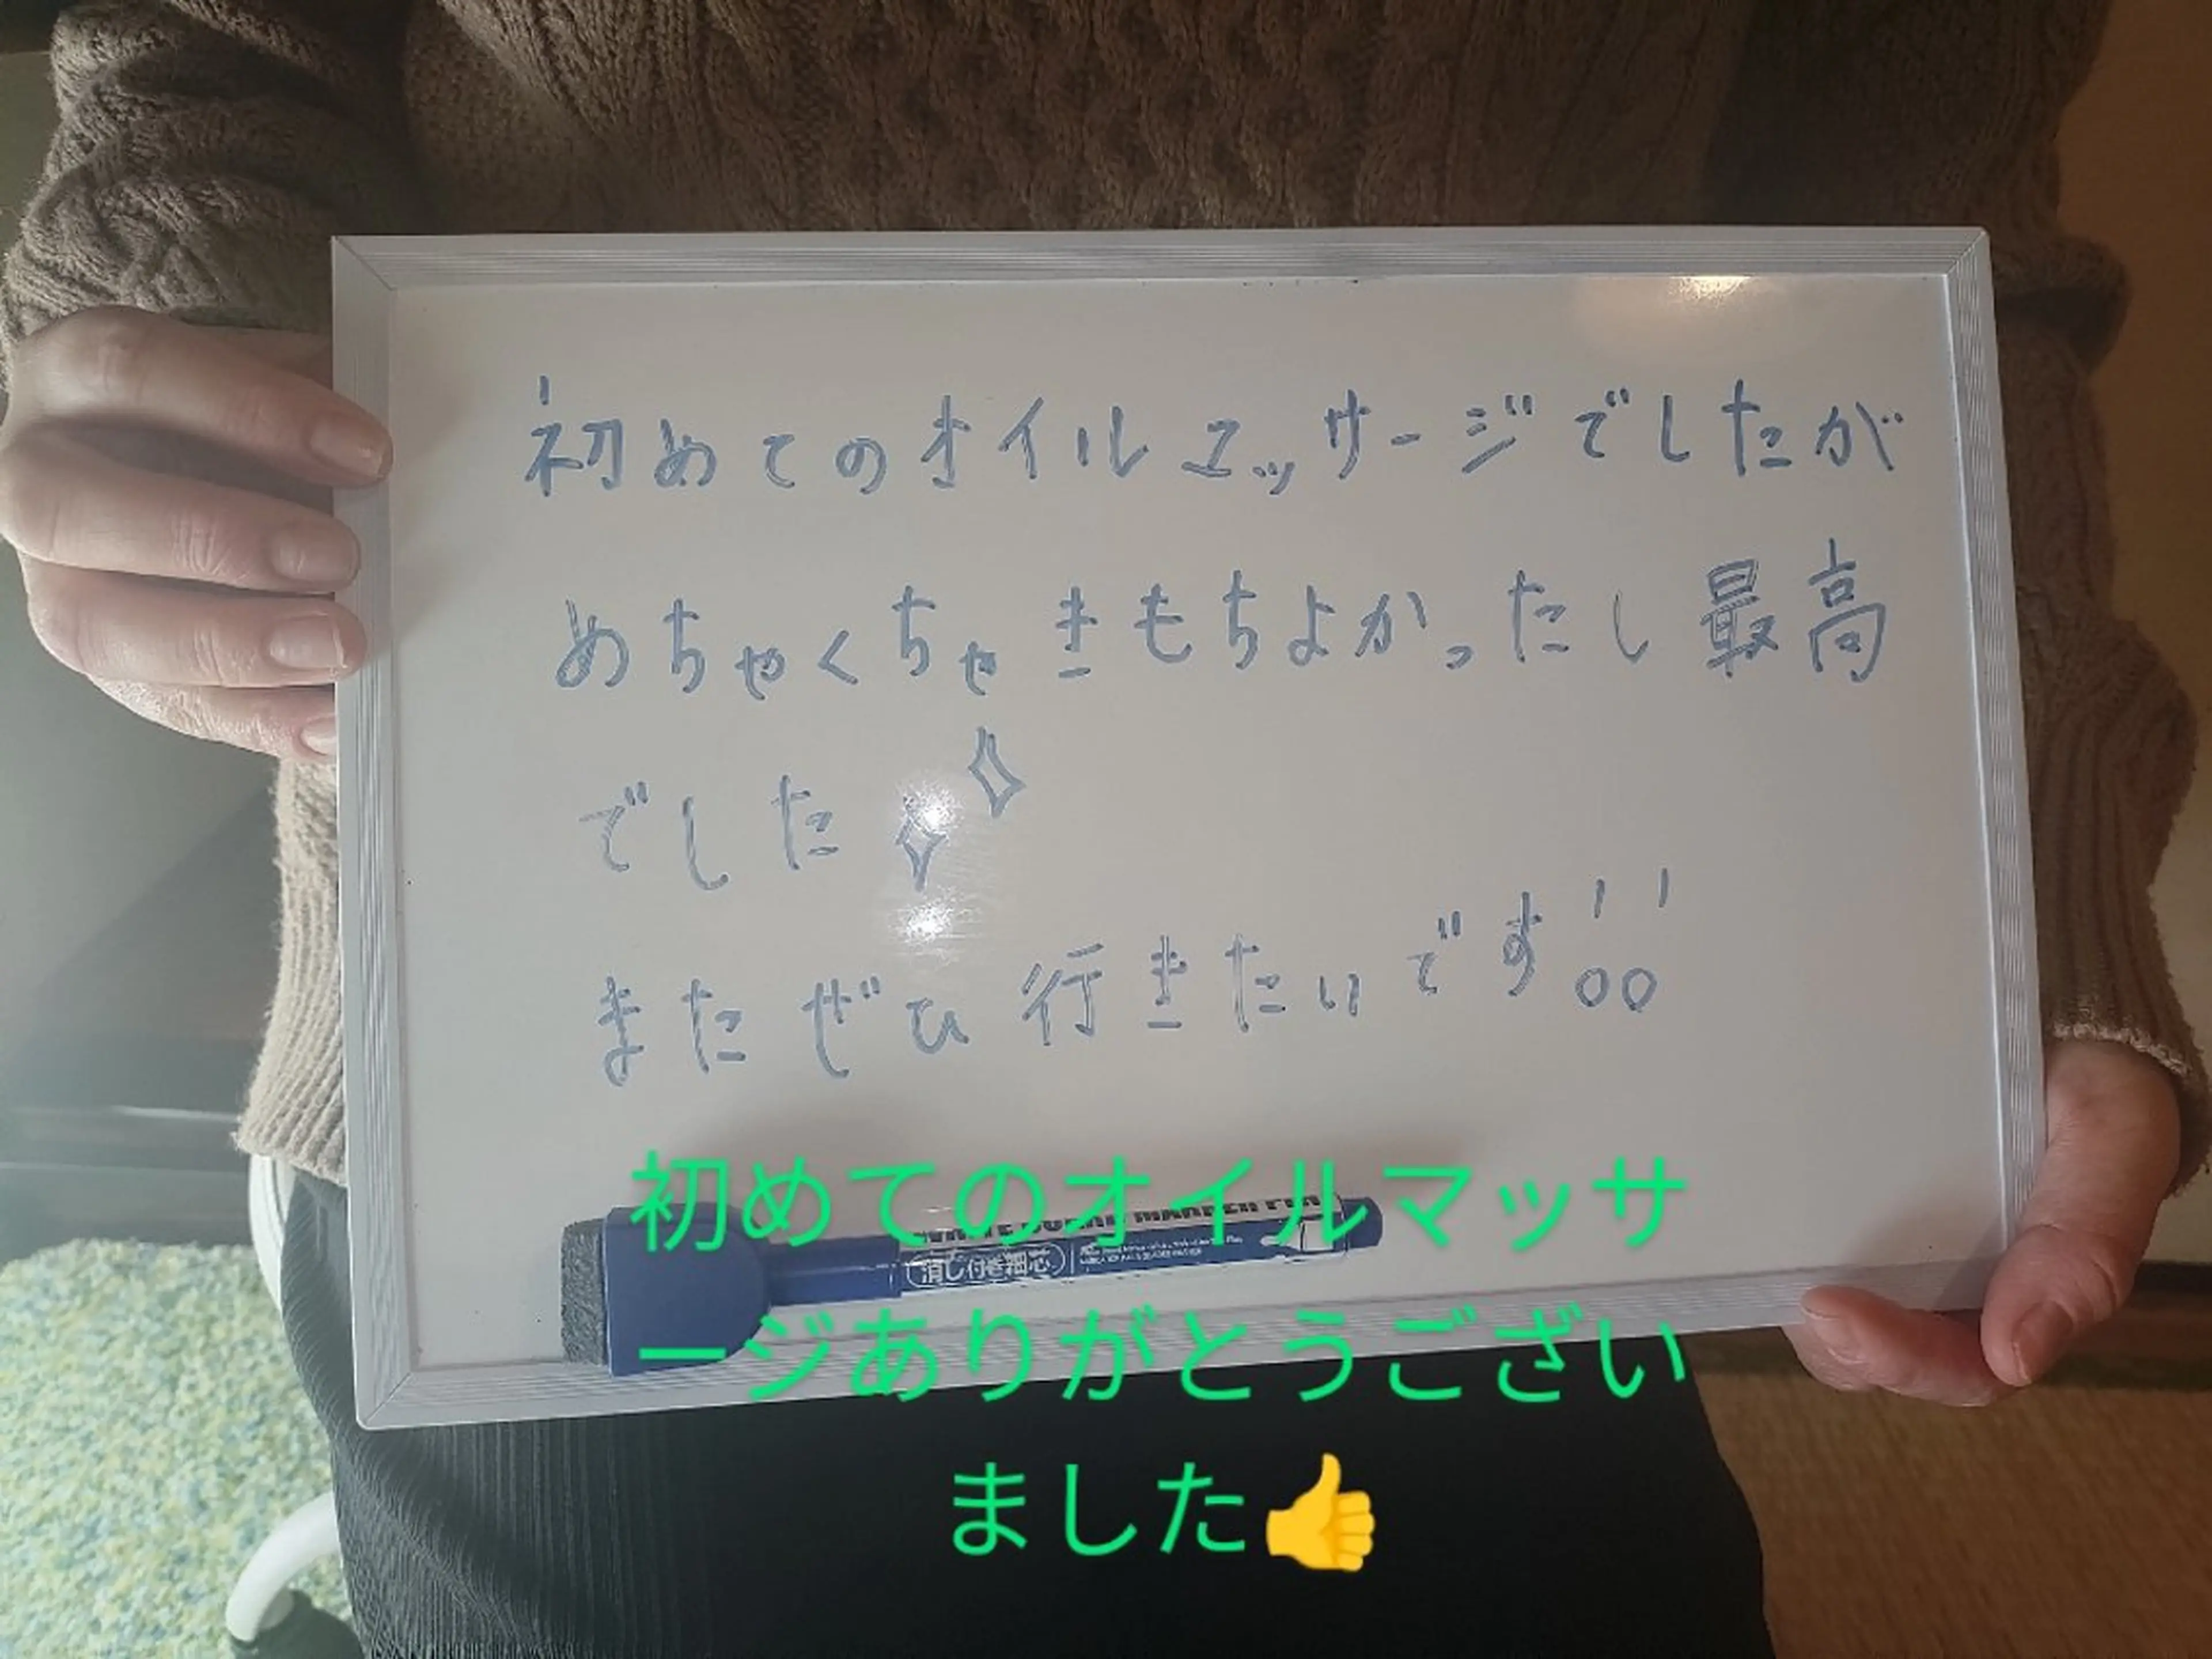 初めてのオイルマッサージでしたが
めちゃくちゃきもちよかったし最高
でした
またぜひ行きたいです!!
初めてのオイルマッサ
消し付き細芯
ージありがとうござい
ました👍